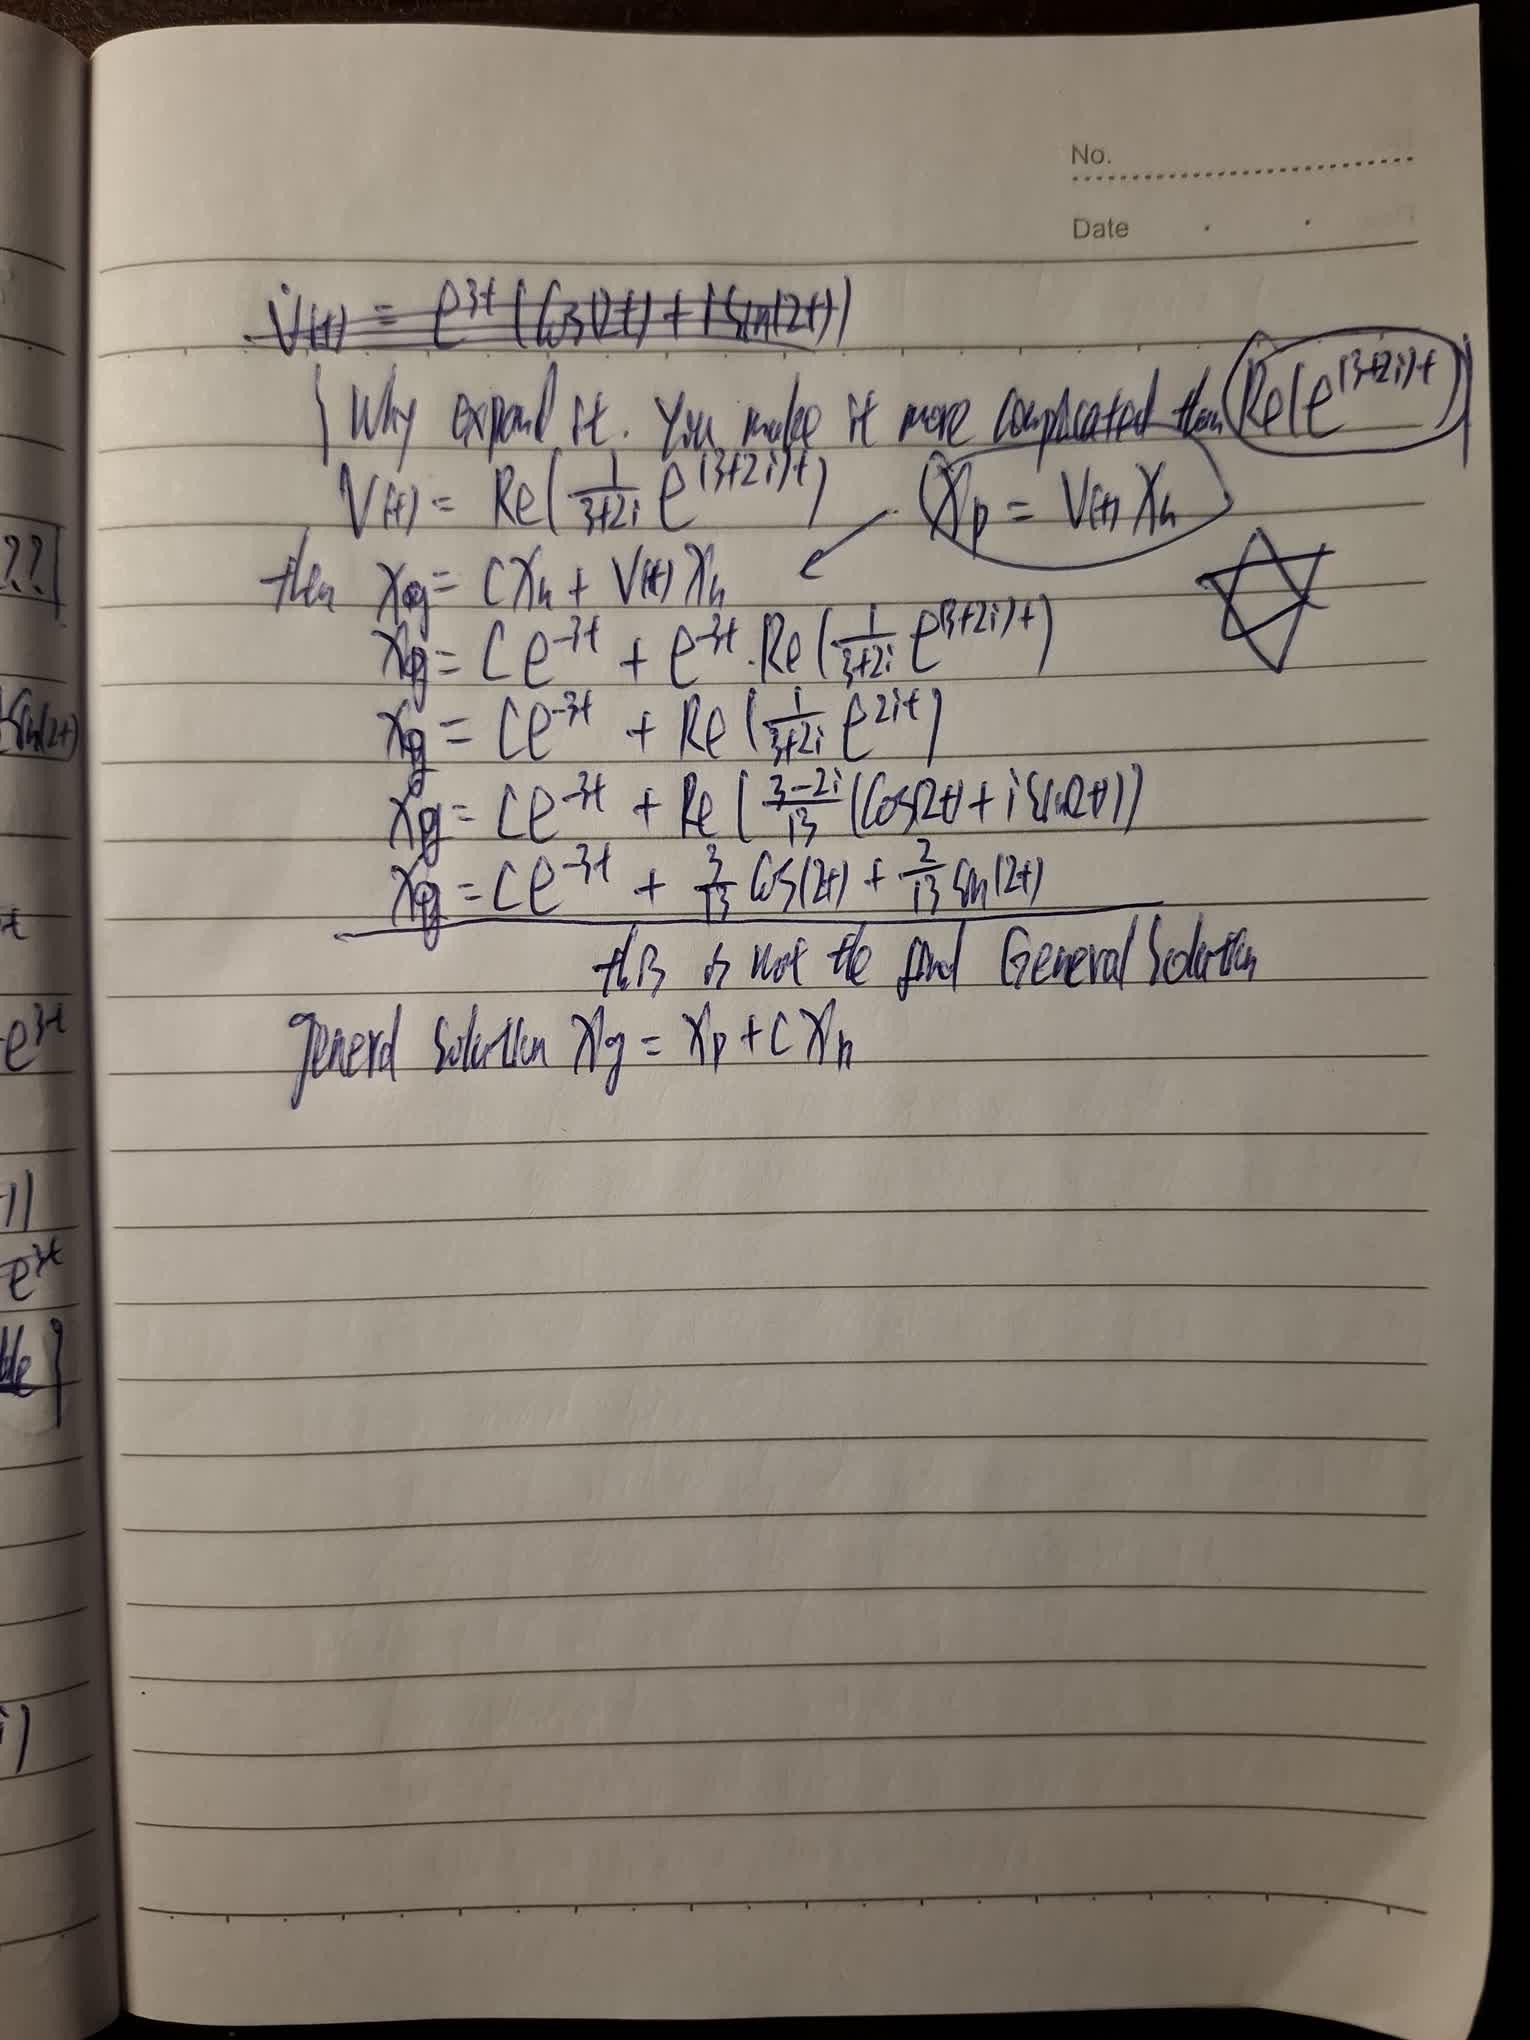 No.
Date
V̇(t) = e^{3t} (cos(2t) + i sin(2t))
{ Why expand it. You make it more complicated than Re(e^{(3+2i)t}) }
V(t) = Re( 1/(3+2i) e^{(3+2i)t} )
X_p = V(t) X_h
then X_g = C X_h + V(t) X_h
X_g = C e^{-3t} + e^{-3t} · Re( 1/(3+2i) e^{(3+2i)t} )
X_g = C e^{-3t} + Re( 1/(3+2i) e^{2it} )
X_g = C e^{-3t} + Re( (3-2i)/13 (cos(2t) + i sin(2t)) )
X_g = C e^{-3t} + 3/13 cos(2t) + 2/13 sin(2t)
this is not the final General Solution
general solution X_g = X_p + C X_h
??
sin(2t)
t
e^{3t}
-1)
e^{3t}
i)